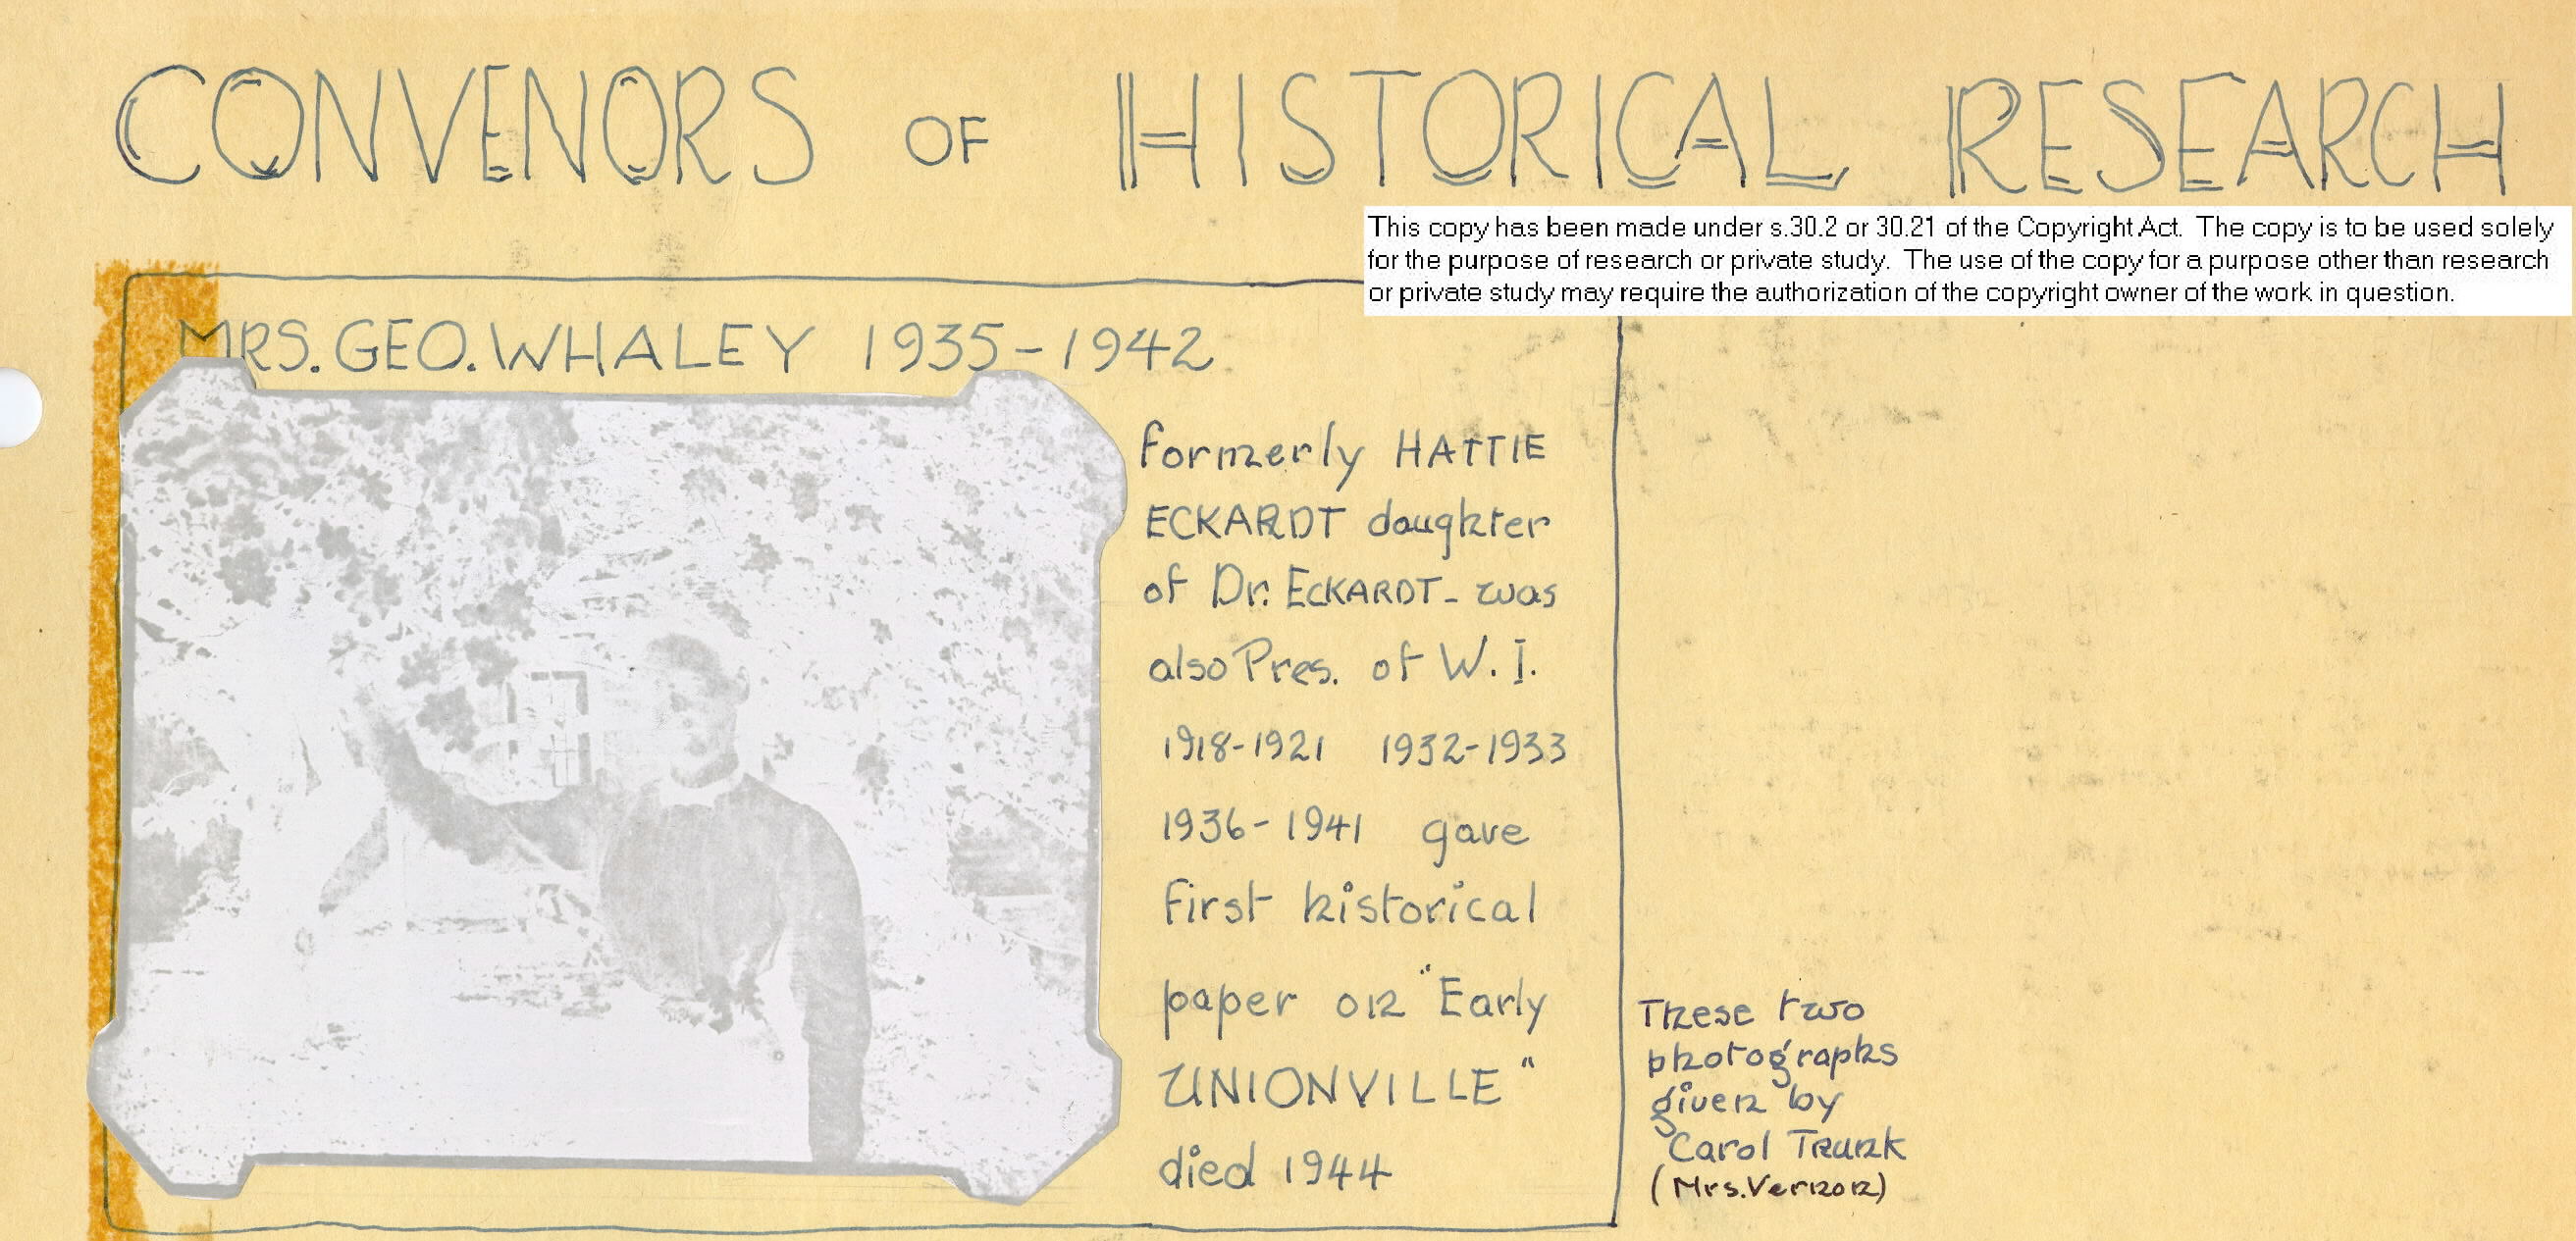 CONVENORS OF HISTORICAL RESEARCH
This copy has been made under s.30.2 or 30.21 of the Copyright Act. The copy is to be used solely
for the purpose of research or private study. The use of the copy for a purpose other than research
or private study may require the authorization of the copyright owner of the work in question.
MRS. GEO. WHALEY 1935-1942
formerly HATTIE
ECKARDT daughter
of Dr. ECKARDT - was
also Pres. of W. I.
1918-1921 1932-1933
1936-1941 gave
first historical
paper on "Early
UNIONVILLE"
died 1944
These two
photographs
given by
Carol Trunk
(Mrs. Vernon)